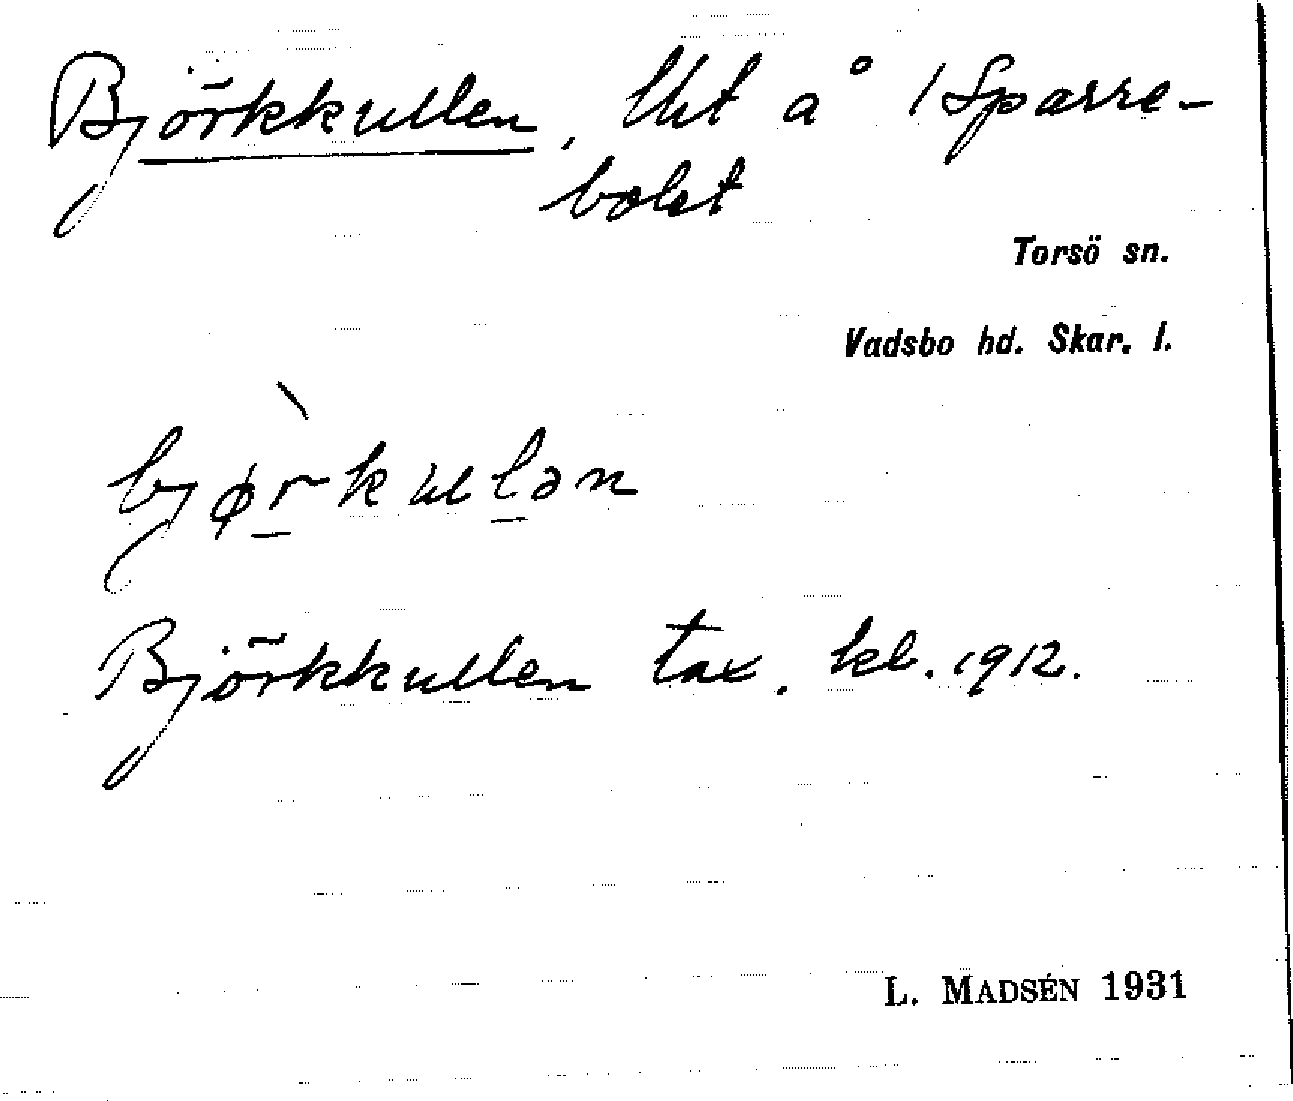 Björkkullen, lht å 1 Sparre-
bolet
Torsö sn.
Vadsbo hd. Skar. l.
bjø̀r̠kul̠ən
Björkkullen tax. kl. 1912.
L. MADSÉN 1931